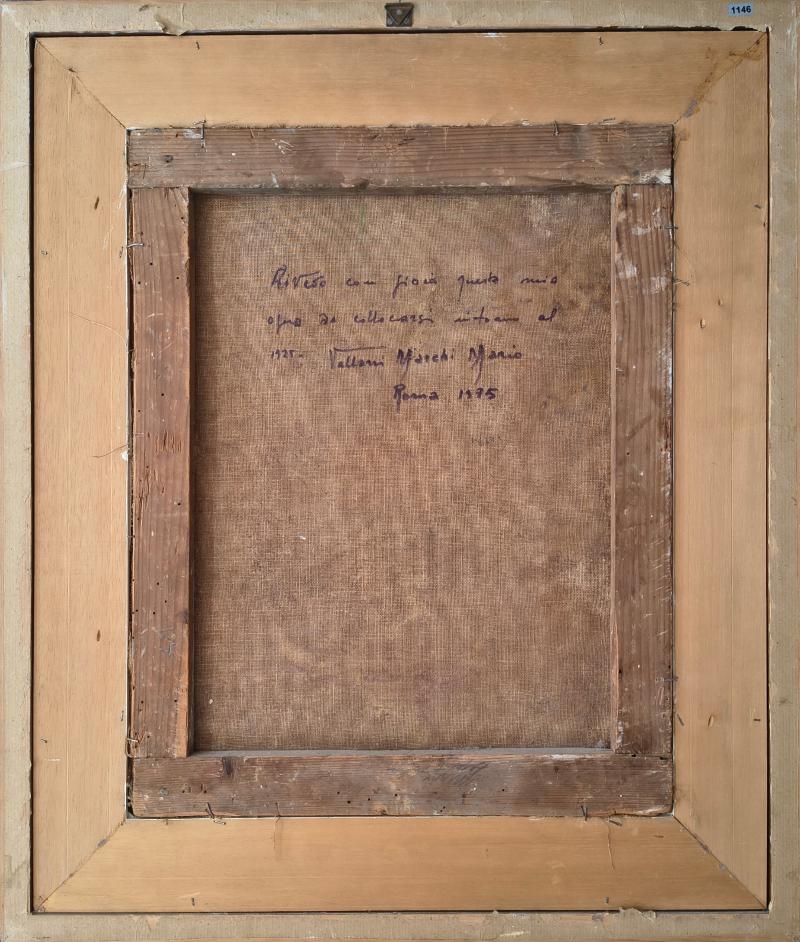 1146
Rivedo con gioia questa mia
opera da collocarsi intorno al
1925. Vellani Marchi Mario
Roma 1975